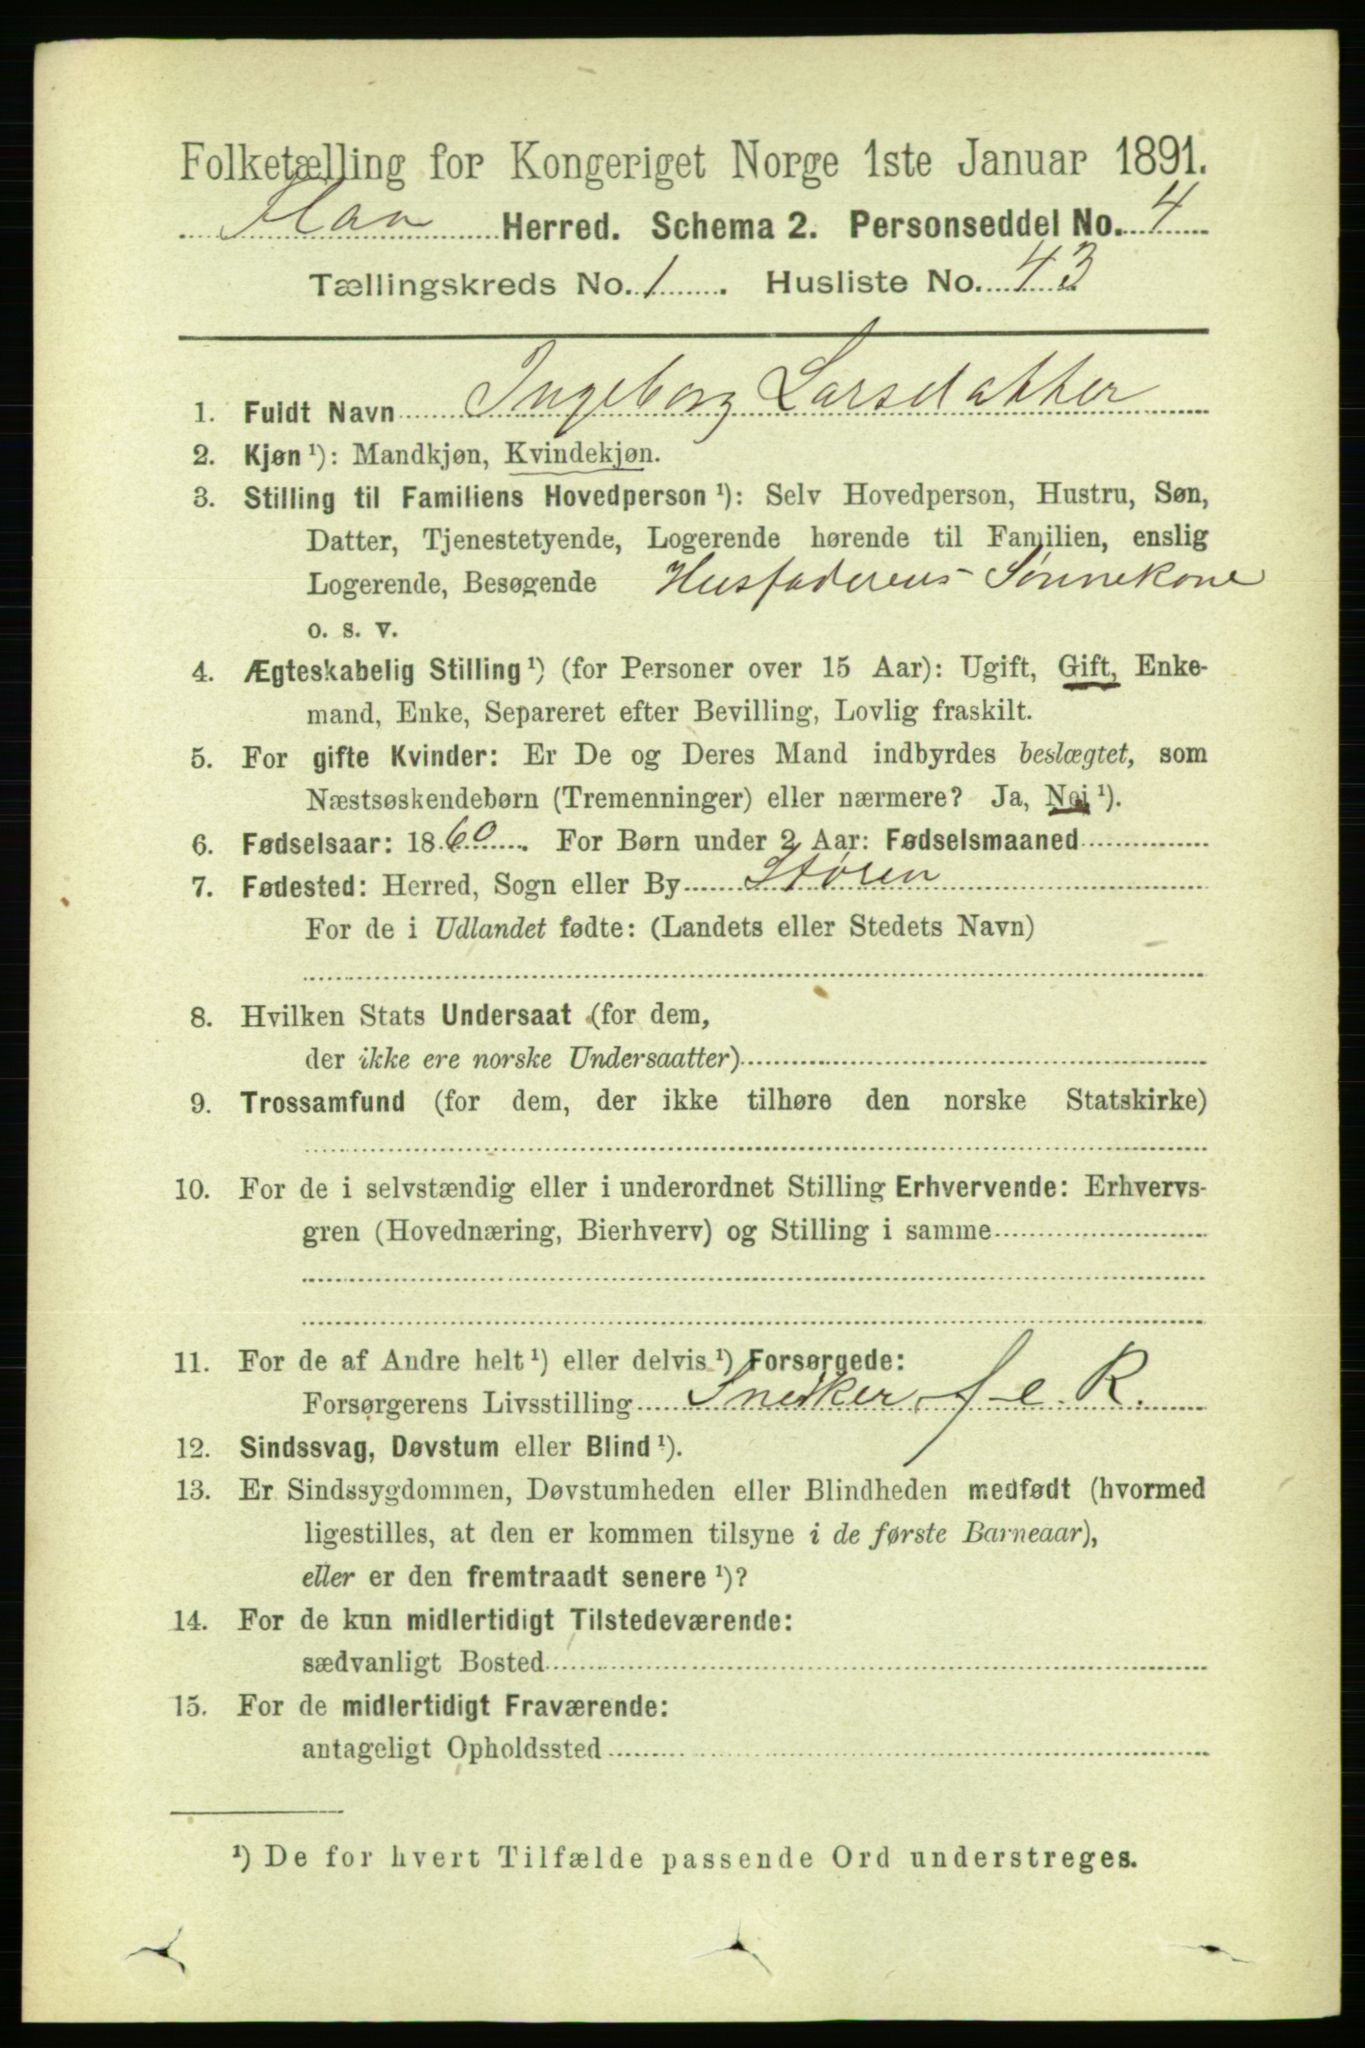 Folketælling for Kongeriget Norge 1ste Januar 1891.
Flaa Herred. Schema 2. Personseddel No. 4
Tællingskreds No. 1. Husliste No. 43
1. Fuldt Navn Ingeborg Larsdatter
2. Kjøn ¹): Mandkjøn, Kvindekjøn.
3. Stilling til Familiens Hovedperson ¹): Selv Hovedperson, Hustru, Søn,
Datter, Tjenestetyende, Logerende hørende til Familien, enslig
Logerende, Besøgende Husfaderens Sønnekone
o. s. v.
4. Ægteskabelig Stilling ¹) (for Personer over 15 Aar): Ugift, Gift, Enke-
mand, Enke, Separeret efter Bevilling, Lovlig fraskilt.
5. For gifte Kvinder: Er De og Deres Mand indbyrdes beslægtet, som
Næstsøskendebørn (Tremenninger) eller nærmere? Ja, Nei ¹).
6. Fødselsaar: 1860. For Børn under 2 Aar: Fødselsmaaned
7. Fødested: Herred, Sogn eller By Støren
For de i Udlandet fødte: (Landets eller Stedets Navn)
8. Hvilken Stats Undersaat (for dem,
der ikke ere norske Undersaatter)
9. Trossamfund (for dem, der ikke tilhøre den norske Statskirke)
10. For de i selvstændig eller i underordnet Stilling Erhvervende: Erhvervs-
gren (Hovednæring, Bierhverv) og Stilling i samme
11. For de af Andre helt ¹) eller delvis ¹) Forsørgede:
Forsørgerens Livsstilling Snedker f. e. R.
12. Sindssvag, Døvstum eller Blind ¹).
13. Er Sindssygdommen, Døvstumheden eller Blindheden medfødt (hvormed
ligestilles, at den er kommen tilsyne i de første Barneaar),
eller er den fremtraadt senere ¹)?
14. For de kun midlertidigt Tilstedeværende:
sædvanligt Bosted
15. For de midlertidigt Fraværende:
antageligt Opholdssted
¹) De for hvert Tilfælde passende Ord understreges.